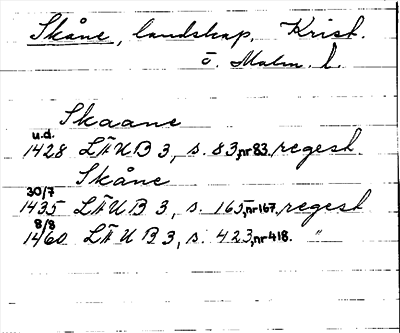 Skåne, landskap, Krist.
o. Malm. l.
Skaane
u.d.
1428 LÄUB 3, s. 83, nr 83. regest
Skåne
30/7
1435 LÄUB 3, s. 165, nr 167, regest
8/8
1460 LÄUB 3, s. 423, nr 418. "